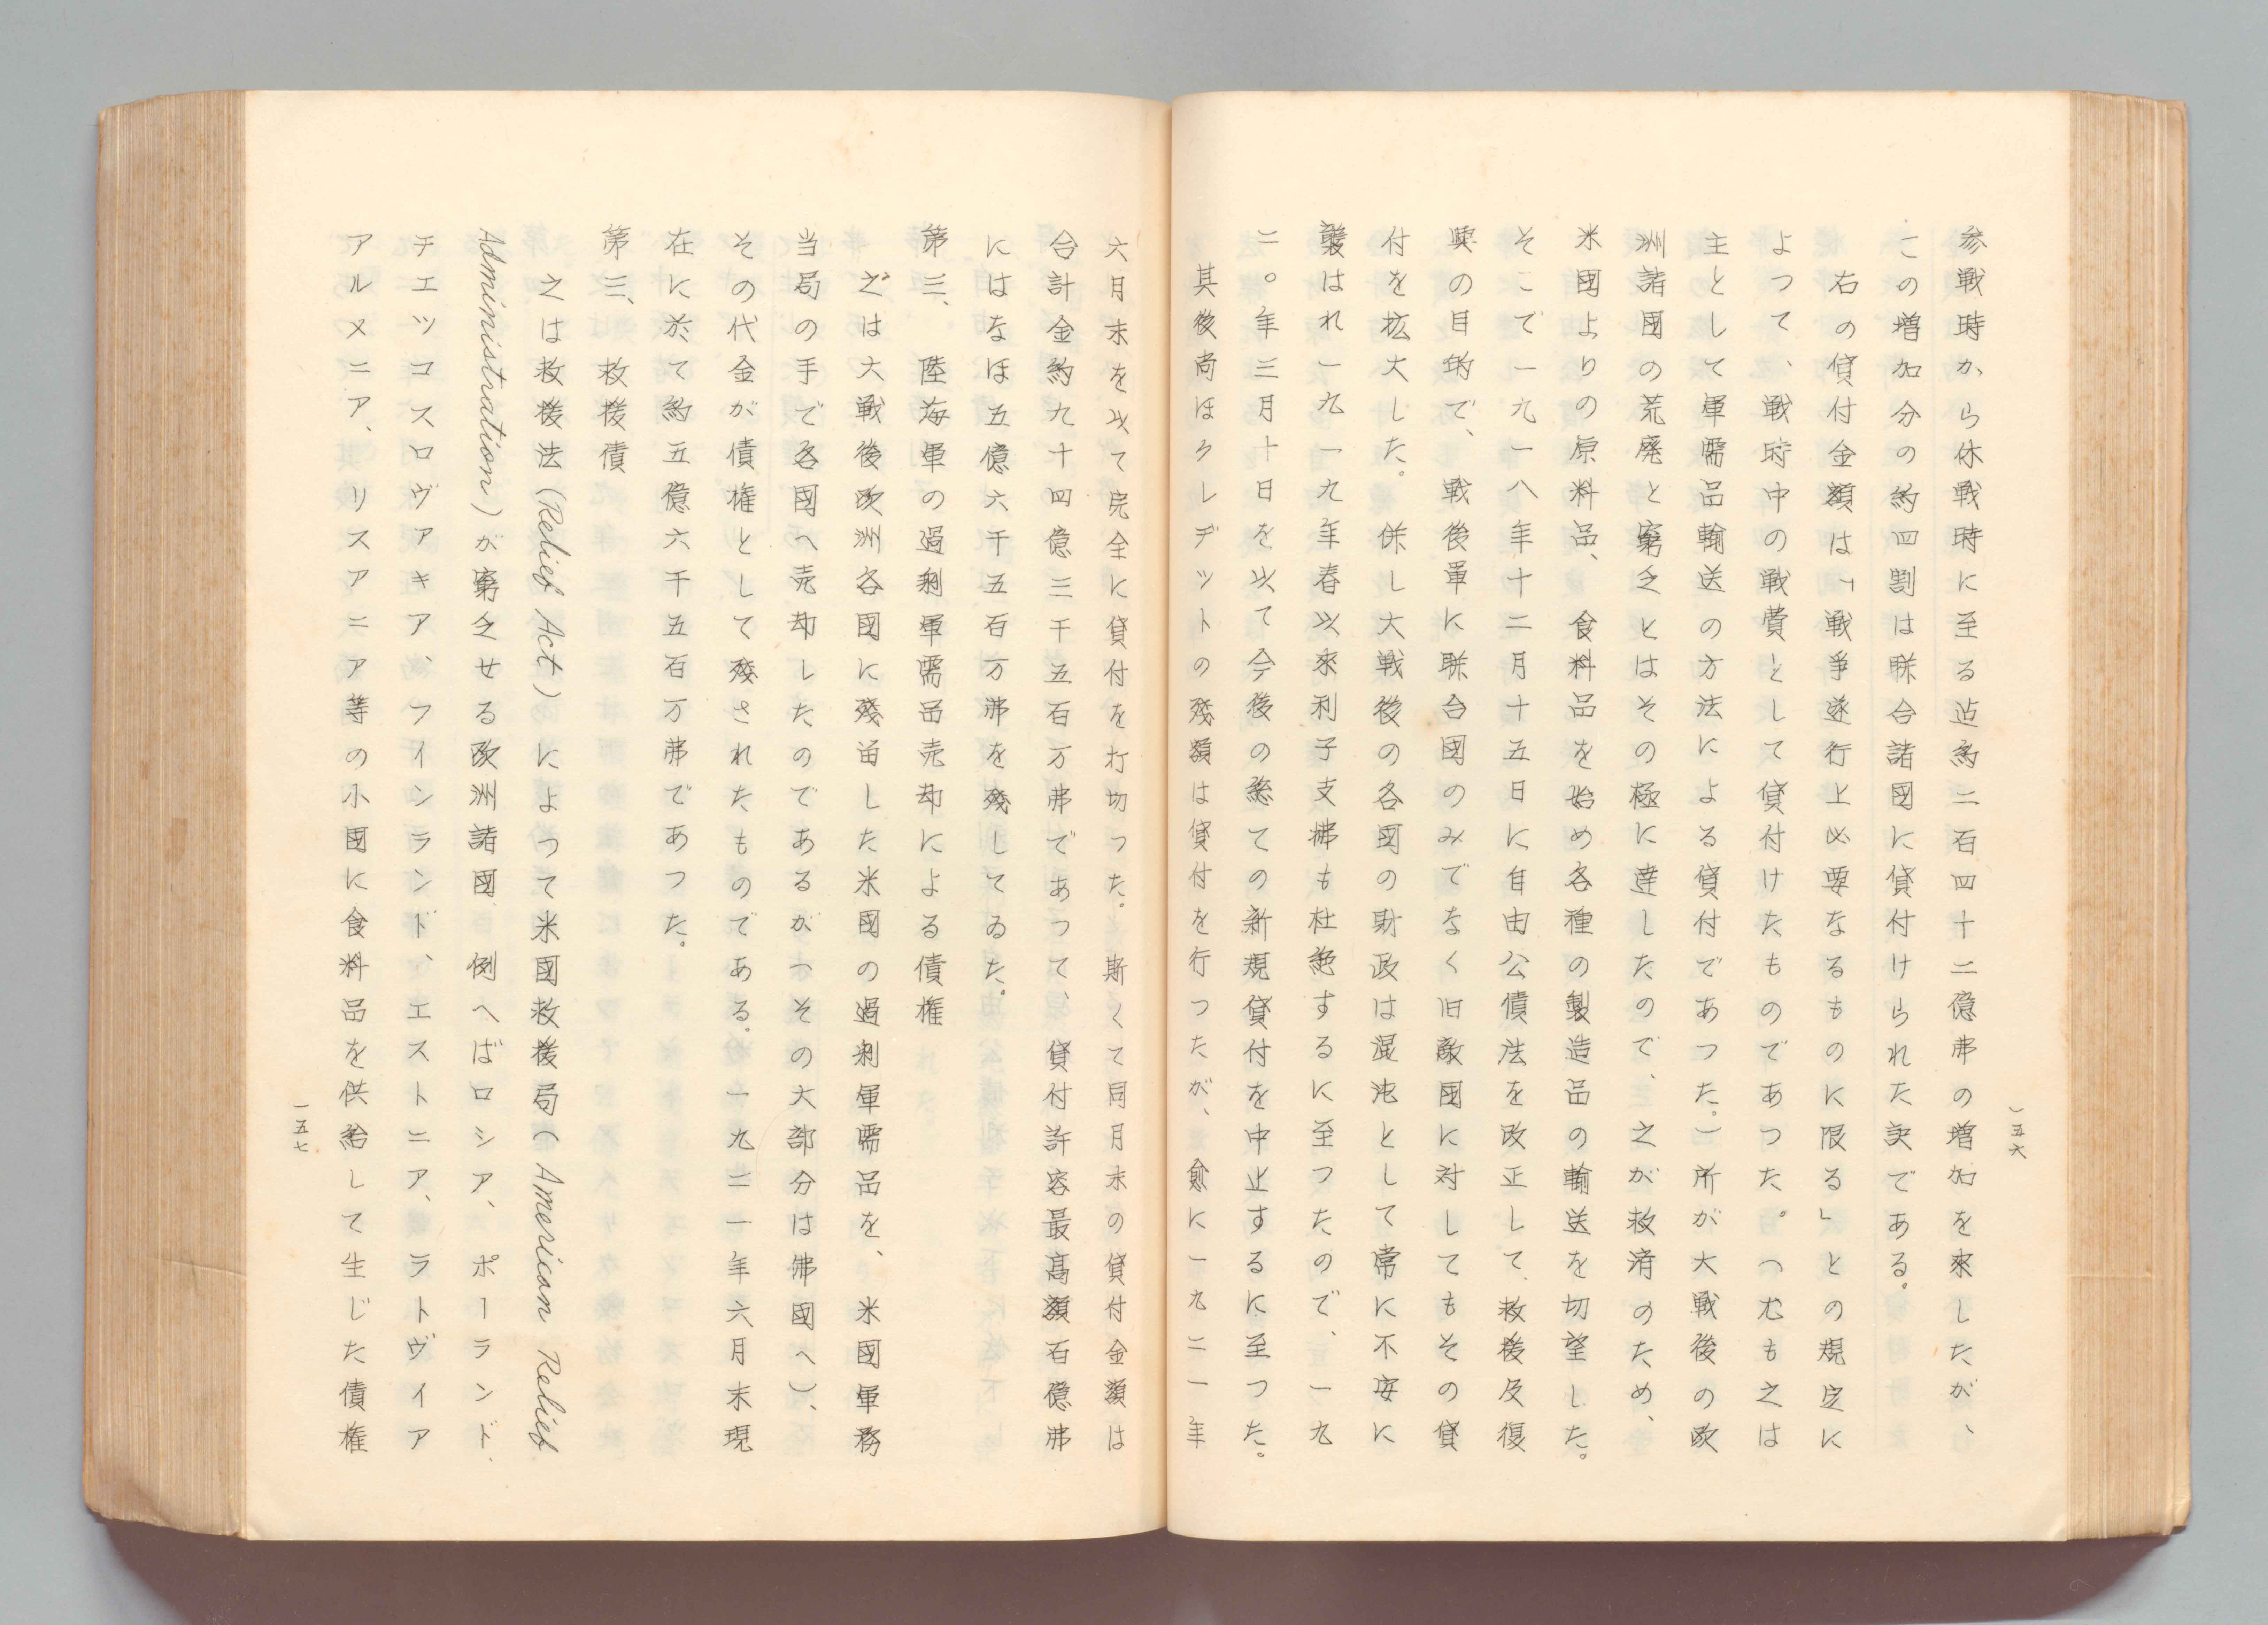 参戦時から休戦時に至る迠約二百四十二億弗の増加を來したが、
この増加分の約四割は聯合諸國に貸付けられた訳である。
右の貸付金額は「戦爭遂行上必要なるものに限る」との規定に
よつて、戦時中の戦費として貸付けたものであつた。(尤も之は
主として軍需品輸送の方法による貸付であつた。)所が大戦後の欧
洲諸國の荒廃と窮乏とはその極に達したので、之が救済のため、
米國よりの原料品、食料品を始め各種の製造品の輸送を切望した。
そこで一九一八年十二月十五日に自由公債法を改正して、救援及復
興の目的で、戦後軍に聯合國のみでなく旧敵國に対してもその貸
付を拡大した。併し大戦後の各國の財政は混沌として常に不安に
襲はれ一九一九年春以來利子支拂も杜絶するに至つたので、一九
二〇年三月十日を以て今後の総ての新規貸付を中止するに至つた。
其後尚ほクレヂットの残額は貸付を行つたが、愈に一九二一年
一五六
六月末を以て完全に貸付を打切つた。斯くて同月末の貸付金額は
合計金約九十四億三千五百万弗であつて、貸付許容最高額百億弗
にはなほ五億六千五百万弗を残してゐた。
第三、陸海軍の過剰軍需品売却による債権
之は大戦後欧洲各國に残留した米國の過剰軍需品を、米國軍務
当局の手で各國へ売却したのであるが(その大部分は佛國へ)、
その代金が債権として残されたものである。一九二一年六月末現
在に於て約五億六千五百万弗であつた。
第三、救援債
之は救援法(Relief Act)によつて米國救援局(American Relief
Administration)が窮乏せる欧洲諸國例へばロシア、ポーランド、
チエツコスロヴアキア、フインランド、エストニア、ラトヴイア
アルメニア、リスアニア等の小國に食料品を供給して生じた債権
一五七